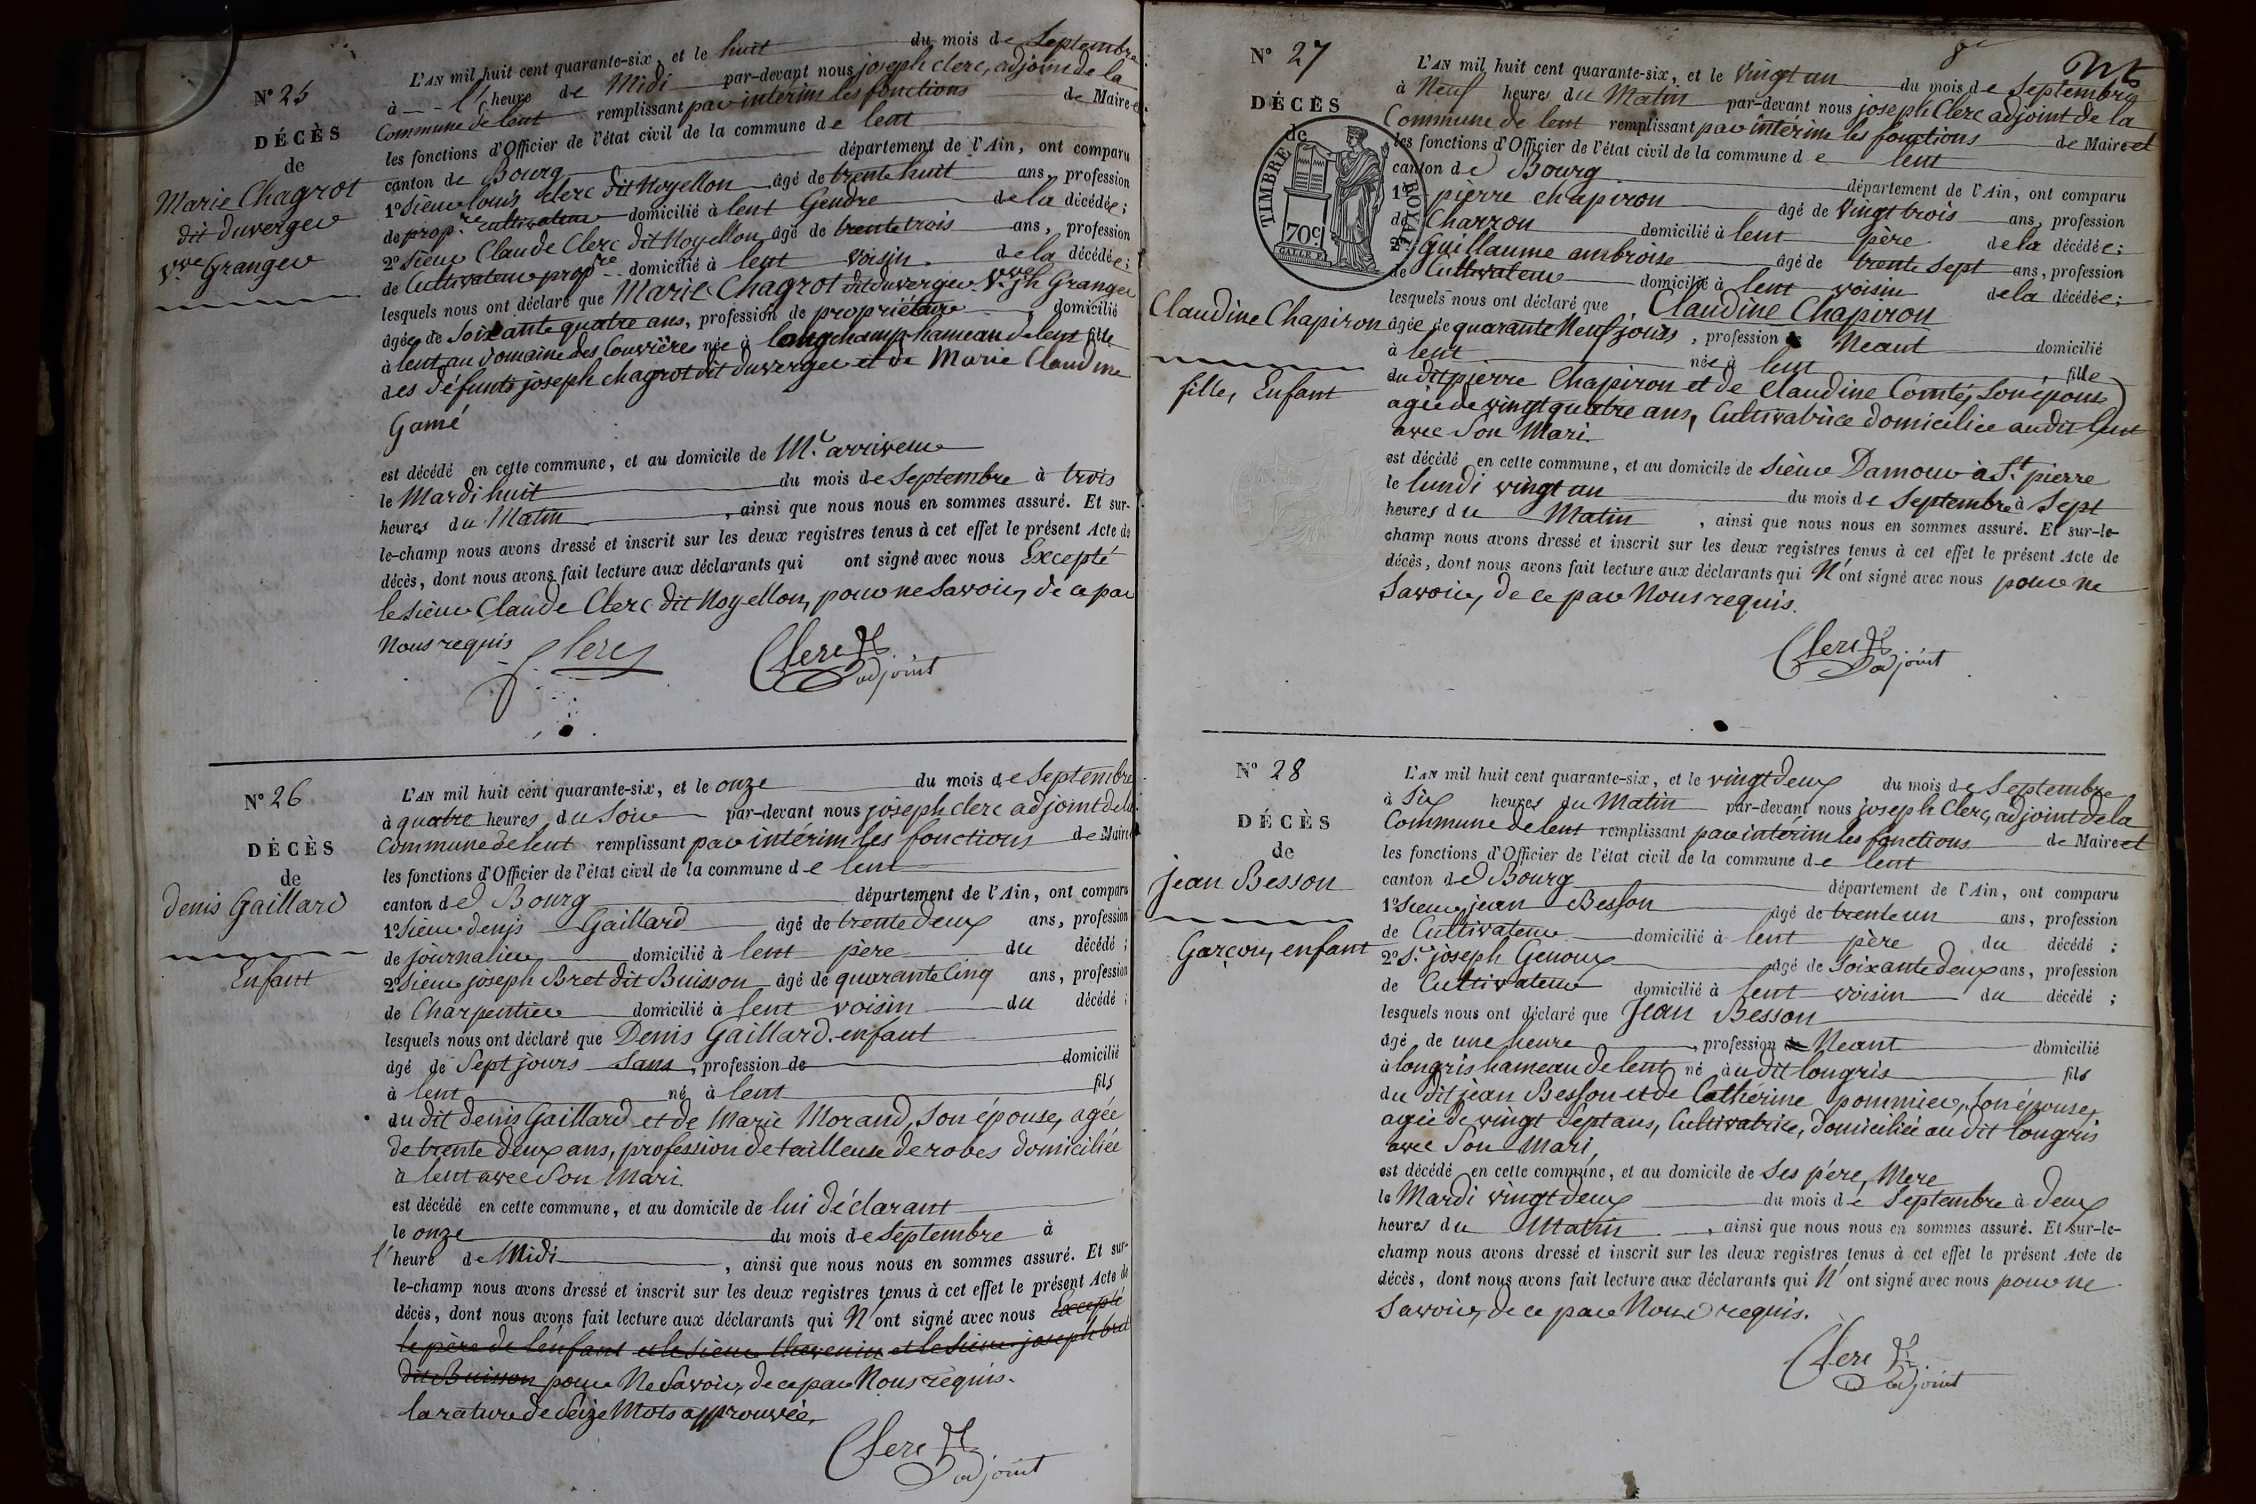 N° 25
DÉCÈS
de
Marie Chagrot
dit Duverger
Vve Granger
L'AN mil huit cent quarante-six, et le huit du mois de Septembre
à l' heure de Midi par-devant nous joseph clerc, adjoint de la
Commune de lent remplissant par interim les fonctions de Maire et
les fonctions d'Officier de l'état civil de la commune de lent
canton de Bourg département de l'Ain, ont comparu
1° Sieur louis clerc dit Noyellon âgé de trente huit ans, profession
de propre cultivateur domicilié à lent Gendre de la décédée;
2° Sieur Claude Clerc dit Noyellon âgé de trente trois ans, profession
de Cultivateur propre domicilié à lent voisin de la décédée;
lesquels nous ont déclaré que Marie Chagrot dit duverger Vve jh Granger
âgée de Soixante quatre ans, profession de propriétaire domicilié
à lent au domaine des Couvières née à longchamp hameau de lent fille
des défunts joseph chagrot dit duverger et de Marie Claudine
Gamé
est décédé en cette commune, et au domicile de Mr arriveur
le Mardi huit du mois de Septembre à trois
heures du Matin, ainsi que nous nous en sommes assuré. Et sur-
le-champ nous avons dressé et inscrit sur les deux registres tenus à cet effet le présent Acte de
décès, dont nous avons fait lecture aux déclarants qui ont signé avec nous Excepté
le sieur Claude Clerc dit Noyellon, pour ne Savoir, de ce par
Nous requis
Clerc Clerc
adjoint
N° 26
DÉCÈS
de
denis Gaillard
Enfant
L'AN mil huit cent quarante-six, et le onze du mois de Septembre
à quatre heures du Soir par-devant nous joseph clerc adjoint de la
Commune de lent remplissant par intérim les fonctions de Maire
les fonctions d'Officier de l'état civil de la commune de lent
canton de Bourg département de l'Ain, ont comparu
1° Sieur denis Gaillard âgé de trente deux ans, profession
de journalier domicilié à lent père du décédé;
2° Sieur joseph Bret dit Buisson âgé de quarante Cinq ans, profession
de Charpentier domicilié à lent voisin du décédé;
lesquels nous ont déclaré que Denis Gaillard enfant
âgé de Sept jours Sans, profession de domicilié
à lent né à lent fils
du dit denis Gaillard et de Marie Morand, Son épouse, agée
de trente deux ans, profession de tailleuse de robes domiciliée
à lent avec Son Mari
est décédé en cette commune, et au domicile de lui déclarant
le onze du mois de Septembre à
l' heure de Midi, ainsi que nous nous en sommes assuré. Et sur-
le-champ nous avons dressé et inscrit sur les deux registres tenus à cet effet le présent Acte de
décès, dont nous avons fait lecture aux déclarants qui N'ont signé avec nous Excepté
le père de l'enfant et le sieur thevenin et le sieur joseph bret
dit Buisson pour Ne Savoir, de ce par Nous requis.
la rature de Seize Mots approuvée,
Clerc
adjoint
N° 27
DÉCÈS
de
TIMBRE ROYAL
70c
Claudine Chapiron
fille, Enfant
L'AN mil huit cent quarante-six, et le Vingt un du mois de Septembre
à Neuf heures du Matin par-devant nous joseph Clerc adjoint de la
Commune de lent remplissant par intérim les fonctions de Maire et
les fonctions d'Officier de l'état civil de la commune de lent
canton de Bourg département de l'Ain, ont comparu
1° pierre chapiron âgé de Vingt trois ans, profession
de Charron domicilié à lent père de la décédée;
2° Guillaume ambroise âgé de trente Sept ans, profession
de Cultivateur domicilié à lent voisin de la décédée;
lesquels nous ont déclaré que Claudine Chapiron
âgée de quarante Neuf jours, profession Neant domicilié
à lent née à lent, fille
du dit pierre Chapiron et de Claudine Comté, Son épouse
agée de vingt quatre ans, Cultivatrice domiciliée au dit lent
avec Son Mari.
est décédé en cette commune, et au domicile de Sieur Damour à St pierre
le lundi vingt un du mois de Septembre à Sept
heures du Matin, ainsi que nous nous en sommes assuré. Et sur-le-
champ nous avons dressé et inscrit sur les deux registres tenus à cet effet le présent Acte de
décès, dont nous avons fait lecture aux déclarants qui N'ont signé avec nous pour ne
Savoir, de ce par Nous requis.
Clerc
adjoint
N° 28
DÉCÈS
de
jean Besson
Garçon, enfant
L'AN mil huit cent quarante-six, et le vingt deux du mois de Septembre
à Six heures du Matin par-devant nous joseph Clerc, adjoint de la
Commune de lent remplissant par intérim les fonctions de Maire et
les fonctions d'Officier de l'état civil de la commune de lent
canton de Bourg département de l'Ain, ont comparu
1° Sieur jean Besson âgé de trente un ans, profession
de Cultivateur domicilié à lent père du décédé;
2° Sr joseph Genoux âgé de Soixante deux ans, profession
de Cultivateur domicilié à lent voisin du décédé;
lesquels nous ont déclaré que Jean Besson
âgé de une heure, profession de Neant domicilié
à longris hameau de lent né au dit longris fils
du dit jean Besson et de Cathérine pommier, Son épouse,
agée de vingt Sept ans, Cultivatrice, domiciliée au dit longris
avec Son Mari
est décédé en cette commune, et au domicile de Ses père, Mere
le Mardi vingt deux du mois de Septembre à deux
heures du Matin, ainsi que nous nous en sommes assuré. Et sur-le-
champ nous avons dressé et inscrit sur les deux registres tenus à cet effet le présent Acte de
décès, dont nous avons fait lecture aux déclarants qui N'ont signé avec nous pour ne
Savoir, de ce par Nous requis.
Clerc
adjoint